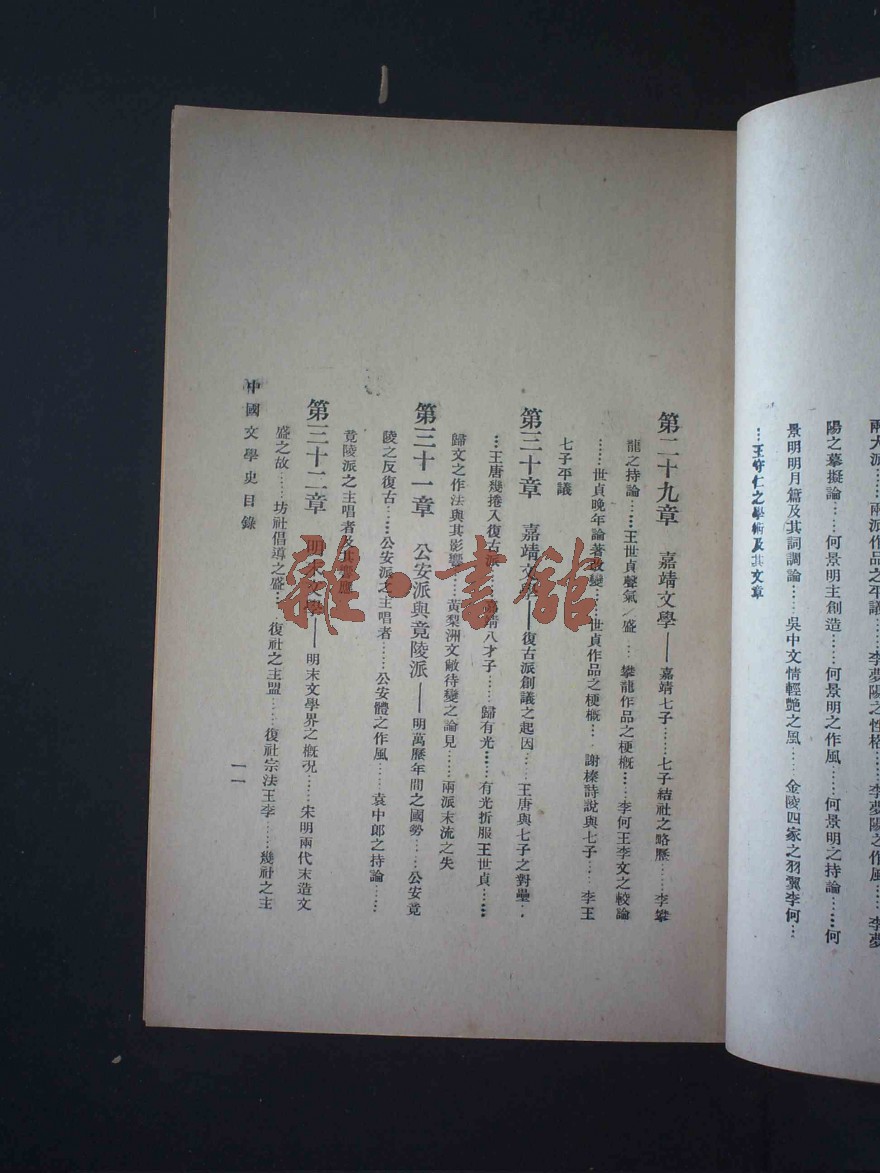 兩大派……兩派作品之平議……李夢陽之性格……李夢陽之作風……李夢
陽之摹擬論……何景明主創造……何景明之作風……何景明之持論……何
景明明月篇及其詞調論……吳中文情輕艷之風……金陵四家之羽翼李何…
…王守仁之學術及其文章
第二十九章 嘉靖文學——嘉靖七子……七子結社之略歷……李攀
龍之持論……王世貞聲氣之盛……攀龍作品之梗概……李何王李文之較論
……世貞晚年論著改變……世貞作品之梗概……謝榛詩說與七子……李王
七子平議
第三十章 嘉靖文學——復古派創議之起因……王唐與七子之對壘…
…王唐幾捲入復古派……嘉靖八才子……歸有光……有光折服王世貞……
歸文之作法與其影響……黃梨洲文敝待變之論見……兩派末流之失
第三十一章 公安派與竟陵派——明萬歷年間之國勢……公安竟
陵之反復古……公安派之主唱者……公安體之作風……袁中郎之持論……
竟陵派之主唱者及其響應
第三十二章 明末文學——明末文學界之概況……宋明兩代末造文
盛之故……坊社倡導之盛……復社之主盟……復社宗法王李……幾社之主
中國文學史目錄
一一
雜·書館